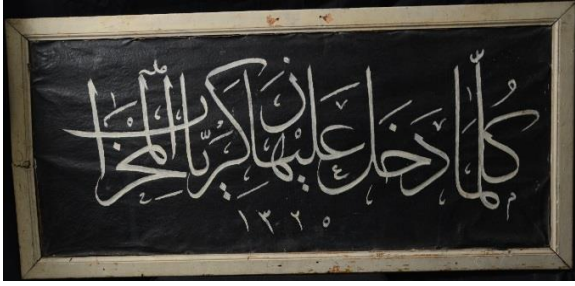 كُلَّمَا دَخَلَ عَلَيْهَا زَكَرِيَّا الْمِحْرَابَ
١٣٢٥